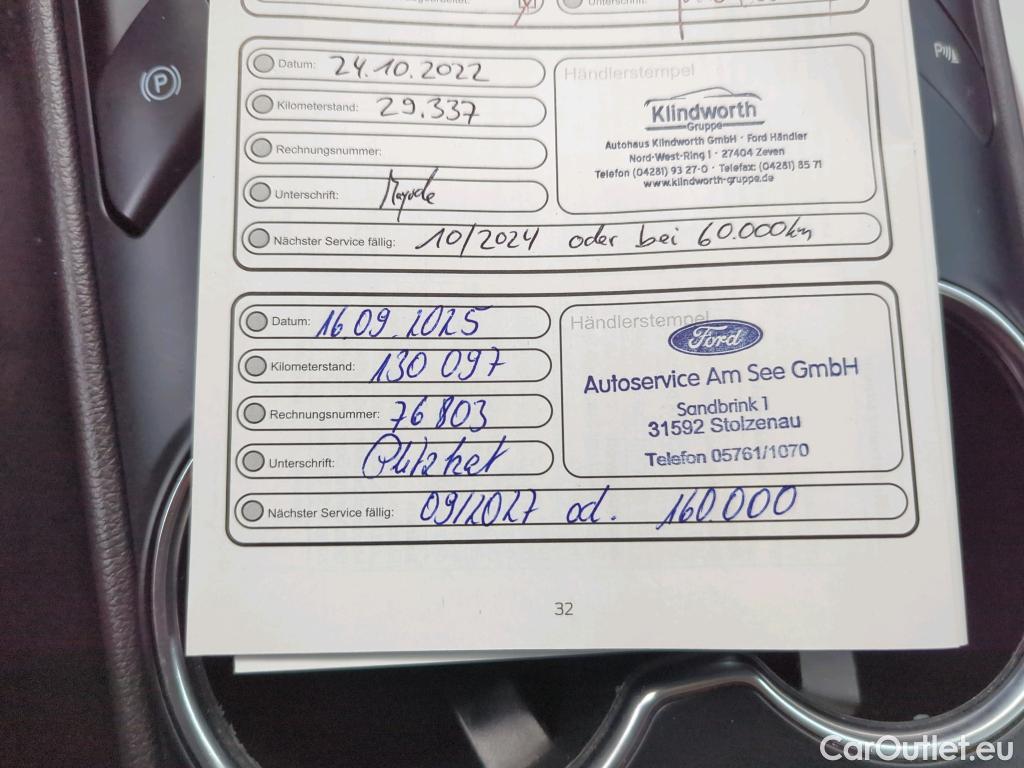 Unterschrift:
Datum: 24.10.2022
Händlerstempel
Kilometerstand: 29.337
Klindworth
Gruppe
Autohaus Klindworth GmbH · Ford Händler
Nord-West-Ring 1 · 27404 Zeven
Telefon (04281) 93 27-0 · Telefax: (04281) 85 71
www.klindworth-gruppe.de
Rechnungsnummer:
Unterschrift:
Nächster Service fällig: 10/2024 oder bei 60.000km
Datum: 16.09.2025
Händlerstempel
Ford
Kilometerstand: 130 097
Autoservice Am See GmbH
Sandbrink 1
31592 Stolzenau
Telefon 05761/1070
Rechnungsnummer: 76803
Unterschrift:
Nächster Service fällig: 09/2027 od. 160.000
32
P
P
CarOutlet.eu